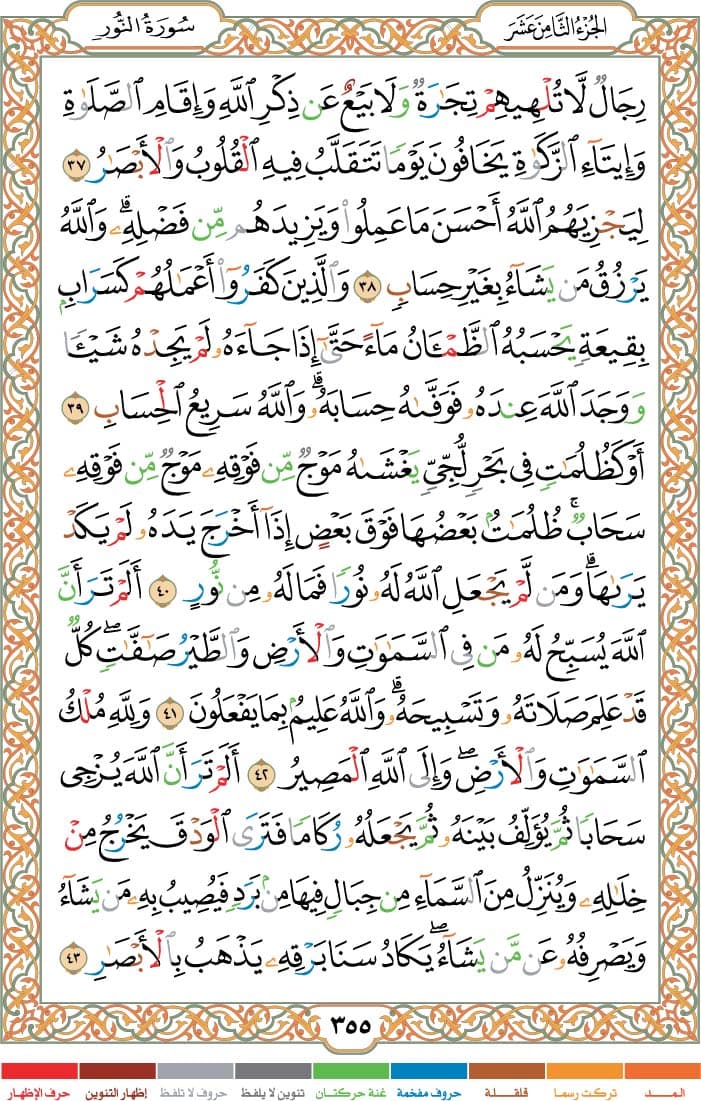 الجُزْءُ الثَّامِنَ عَشَرَ
سُورَةُ النُّورِ
رِجَالٌ لَّا تُلْهِيهِمْ تِجَٰرَةٌ وَلَا بَيْعٌ عَن ذِكْرِ ٱللَّهِ وَإِقَامِ ٱلصَّلَوٰةِ
وَإِيتَآءِ ٱلزَّكَوٰةِ يَخَافُونَ يَوْمًا تَتَقَلَّبُ فِيهِ ٱلْقُلُوبُ وَٱلْأَبْصَٰرُ ٣٧
لِيَجْزِيَهُمُ ٱللَّهُ أَحْسَنَ مَا عَمِلُوا۟ وَيَزِيدَهُم مِّن فَضْلِهِۦ ۗ وَٱللَّهُ
يَرْزُقُ مَن يَشَآءُ بِغَيْرِ حِسَابٍ ٣٨ وَٱلَّذِينَ كَفَرُوٓا۟ أَعْمَٰلُهُمْ كَسَرَابٍۭ
بِقِيعَةٍ يَحْسَبُهُ ٱلظَّمْـَٔانُ مَآءً حَتَّىٰٓ إِذَا جَآءَهُۥ لَمْ يَجِدْهُ شَيْـًٔا
وَوَجَدَ ٱللَّهَ عِندَهُۥ فَوَفَّىٰهُ حِسَابَهُۥ ۗ وَٱللَّهُ سَرِيعُ ٱلْحِسَابِ ٣٩
أَوْ كَظُلُمَٰتٍ فِى بَحْرٍ لُّجِّىٍّ يَغْشَىٰهُ مَوْجٌ مِّن فَوْقِهِۦ مَوْجٌ مِّن فَوْقِهِۦ
سَحَابٌ ۚ ظُلُمَٰتٌۢ بَعْضُهَا فَوْقَ بَعْضٍ إِذَآ أَخْرَجَ يَدَهُۥ لَمْ يَكَدْ
يَرَىٰهَا ۗ وَمَن لَّمْ يَجْعَلِ ٱللَّهُ لَهُۥ نُورًا فَمَا لَهُۥ مِن نُّورٍ ٤٠ أَلَمْ تَرَ أَنَّ
ٱللَّهَ يُسَبِّحُ لَهُۥ مَن فِى ٱلسَّمَٰوَٰتِ وَٱلْأَرْضِ وَٱلطَّيْرُ صَٰٓفَّٰتٍ ۖ كُلٌّ
قَدْ عَلِمَ صَلَاتَهُۥ وَتَسْبِيحَهُۥ ۗ وَٱللَّهُ عَلِيمٌۢ بِمَا يَفْعَلُونَ ٤١ وَلِلَّهِ مُلْكُ
ٱلسَّمَٰوَٰتِ وَٱلْأَرْضِ ۖ وَإِلَى ٱللَّهِ ٱلْمَصِيرُ ٤٢ أَلَمْ تَرَ أَنَّ ٱللَّهَ يُزْجِى
سَحَابًا ثُمَّ يُؤَلِّفُ بَيْنَهُۥ ثُمَّ يَجْعَلُهُۥ رُكَامًا فَتَرَى ٱلْوَدْقَ يَخْرُجُ مِنْ
خِلَٰلِهِۦ وَيُنَزِّلُ مِنَ ٱلسَّمَآءِ مِن جِبَالٍ فِيهَا مِنۢ بَرَدٍ فَيُصِيبُ بِهِۦ مَن يَشَآءُ
وَيَصْرِفُهُۥ عَن مَّن يَشَآءُ ۖ يَكَادُ سَنَا بَرْقِهِۦ يَذْهَبُ بِٱلْأَبْصَٰرِ ٤٣
٣٥٥
المـــد تركت رسما قلقــلة حروف مفخمة غنة حركتان تنوين لا يلفظ حروف لا تلفظ إظهار التنوين حرف الإظهار